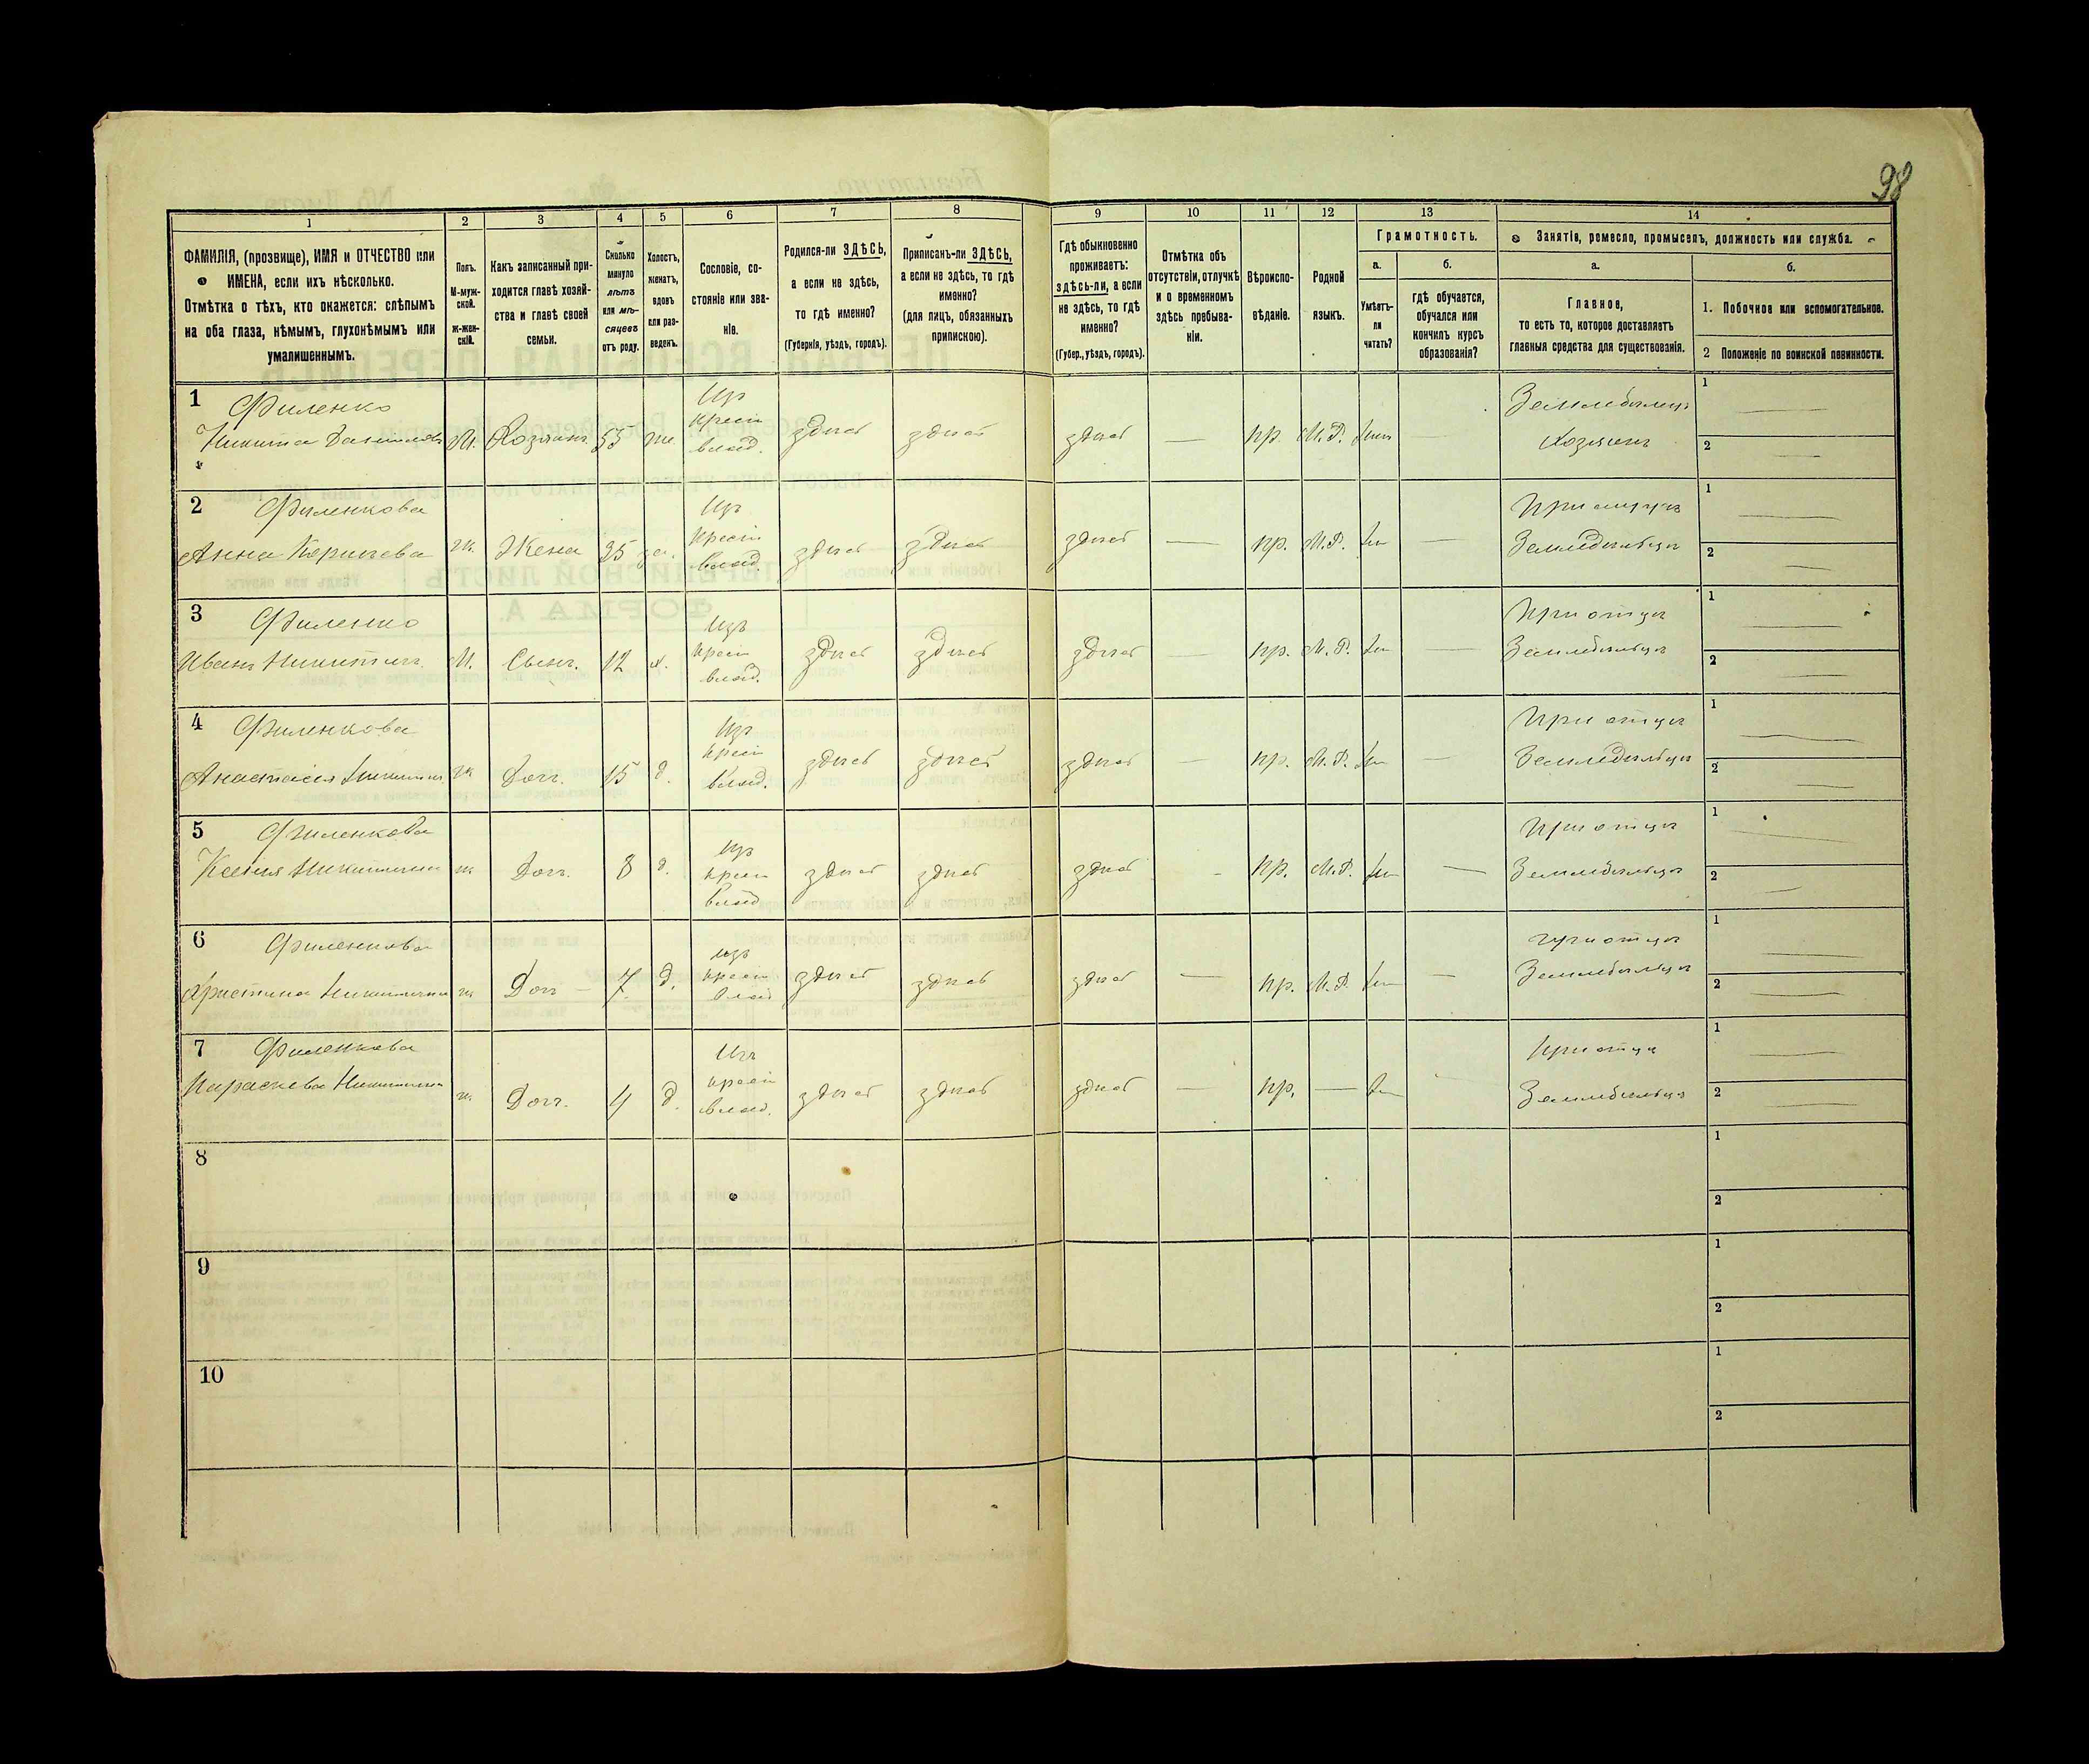 98
1 2 3 4 5 6 7 8 9 10 11 12 13 14
ФАМИЛІЯ, (прозвище), ИМЯ и ОТЧЕСТВО или
ИМЕНА, если ихъ нѣсколько.
Отмѣтка о тѣхъ, кто окажется: слѣпымъ
на оба глаза, нѣмымъ, глухонѣмымъ или
умалишеннымъ.
Полъ.
М-муж-
ской.
ж-жен-
скій.
Какъ записанный при-
ходится главѣ хозяй-
ства и главѣ своей
семьи.
Сколько
минуло
лѣтъ
или мѣ-
сяцевъ
отъ роду.
Холостъ,
женатъ,
вдовъ
или раз-
веденъ.
Сословіе, со-
стояніе или зва-
ніе.
Родился-ли ЗДѢСЬ,
а если не здѣсь,
то гдѣ именно?
(Губернія, уѣздъ, городъ).
Приписанъ-ли ЗДѢСЬ,
а если не здѣсь, то гдѣ
именно?
(для лицъ, обязанныхъ
припискою).
Гдѣ обыкновенно
проживаетъ:
здѣсь-ли, а если
не здѣсь, то гдѣ
именно?
(Губер., уѣздъ, городъ).
Отмѣтка объ
отсутствіи, отлучкѣ
и о временномъ
здѣсь пребыва-
ніи.
Вѣроиспо-
вѣданіе.
Родной
языкъ.
Грамотность.
а.
Умѣетъ-
ли
читать?
б.
гдѣ обучается,
обучался или
кончилъ курсъ
образованія?
Занятіе, ремесло, промыселъ, должность или служба.
а.
Главное,
то есть то, которое доставляетъ
главныя средства для существованія.
б.
1. Побочное или вспомогательное.
2 Положеніе по воинской повинности.
1 Филенко
Никита Данилов М. Хозяинъ 55 ж. Изъ крест. влад. здѣсь здѣсь здѣсь — пр. М.Р. — Земледѣлецъ хозяинъ
1 —
2 —
2 Филенкова
Анна ж. Жена Изъ крест. влад. здѣсь здѣсь здѣсь — пр. М.Р. — При мужѣ Земледѣльцѣ
1 —
2 —
3 Филенко
Иванъ Никитичъ М. Сынъ. 12 х. Изъ крест. влад. здѣсь здѣсь здѣсь — пр. М.Р. — При отцѣ Земледѣльцѣ
1 —
2 —
4 Филенкова
Анастасія ж. Доч. 15 д. Изъ крест. влад. здѣсь здѣсь здѣсь — пр. М.Р. — При отцѣ Земледѣльцѣ
1 —
2 —
5 Филенкова
Ксенія Никитична ж. Доч. 8 д. Изъ крест. влад здѣсь здѣсь здѣсь пр. М.Р. — При отцѣ Земледѣльцѣ
1 —
2 —
6 Филенкова
Христина Никитична ж. Доч 7 д. изъ крест. влад здѣсь здѣсь здѣсь — пр. М.Р. — При отцѣ Земледѣльцѣ
1 —
2 —
7 Филенкова
Параскева Никитична ж. Доч. 4 д. Изъ крест. влад. здѣсь здѣсь здѣсь — пр. — При отцѣ Земледѣльцѣ
1 —
2 —
8
1
2
9
1
2
10
1
2